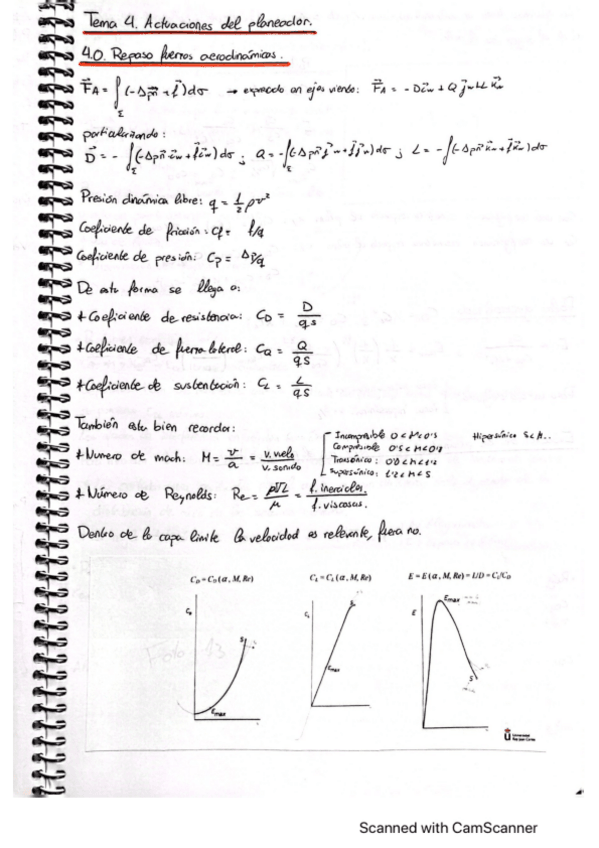 Tema 4. Actuaciones del planeador.
4.0. Repaso fuerzas aerodinámicas.
F⃗A = ∫Σ (-Δp n⃗ + f⃗) dσ → expresado en ejes viento: F⃗A = - D i⃗w + Q j⃗w - L k⃗w
particularizando:
D⃗ = - ∫Σ (-Δp n⃗ · i⃗w + f⃗ i⃗w) dσ ; Q = - ∫Σ (-Δp n⃗ j⃗w + f⃗ j⃗w) dσ ; L = - ∫(-Δp n⃗ · k⃗w + f⃗ k⃗w) dσ
Presión dinámica libre: q = 1/2 ρv²
Coeficiente de fricción: Cf = f/q
Coeficiente de presión: Cp = Δp/q
De esta forma se llega a:
* Coeficiente de resistencia: CD = D/qs
* Coeficiente de fuerza lateral: CQ = Q/qs
* Coeficiente de sustentación: CL = L/qs
También esta bien recordar:
* Numero de mach: M = v/a = v. vuelo / v. sonido
Incompresible 0 < M < 0'5
Compresible 0'5 < M < 0'8
Transónico: 0'8 < M < 1'2
Supersónico: 1'2 < M < 5
Hipersónico 5 < M..
* Número de Reynolds: Re = ρVL/μ = f. inerciales / f. viscosas.
Dentro de la capa limite la velocidad es relevante, fuera no.
CD = CD (α, M, Re)
CL = CL (α, M, Re)
E = E (α, M, Re) = L/D = CL/CD
CD
S
Emax
CL
S
Emax
E
Emax
S
Universidad
Rey Juan Carlos
Scanned with CamScanner